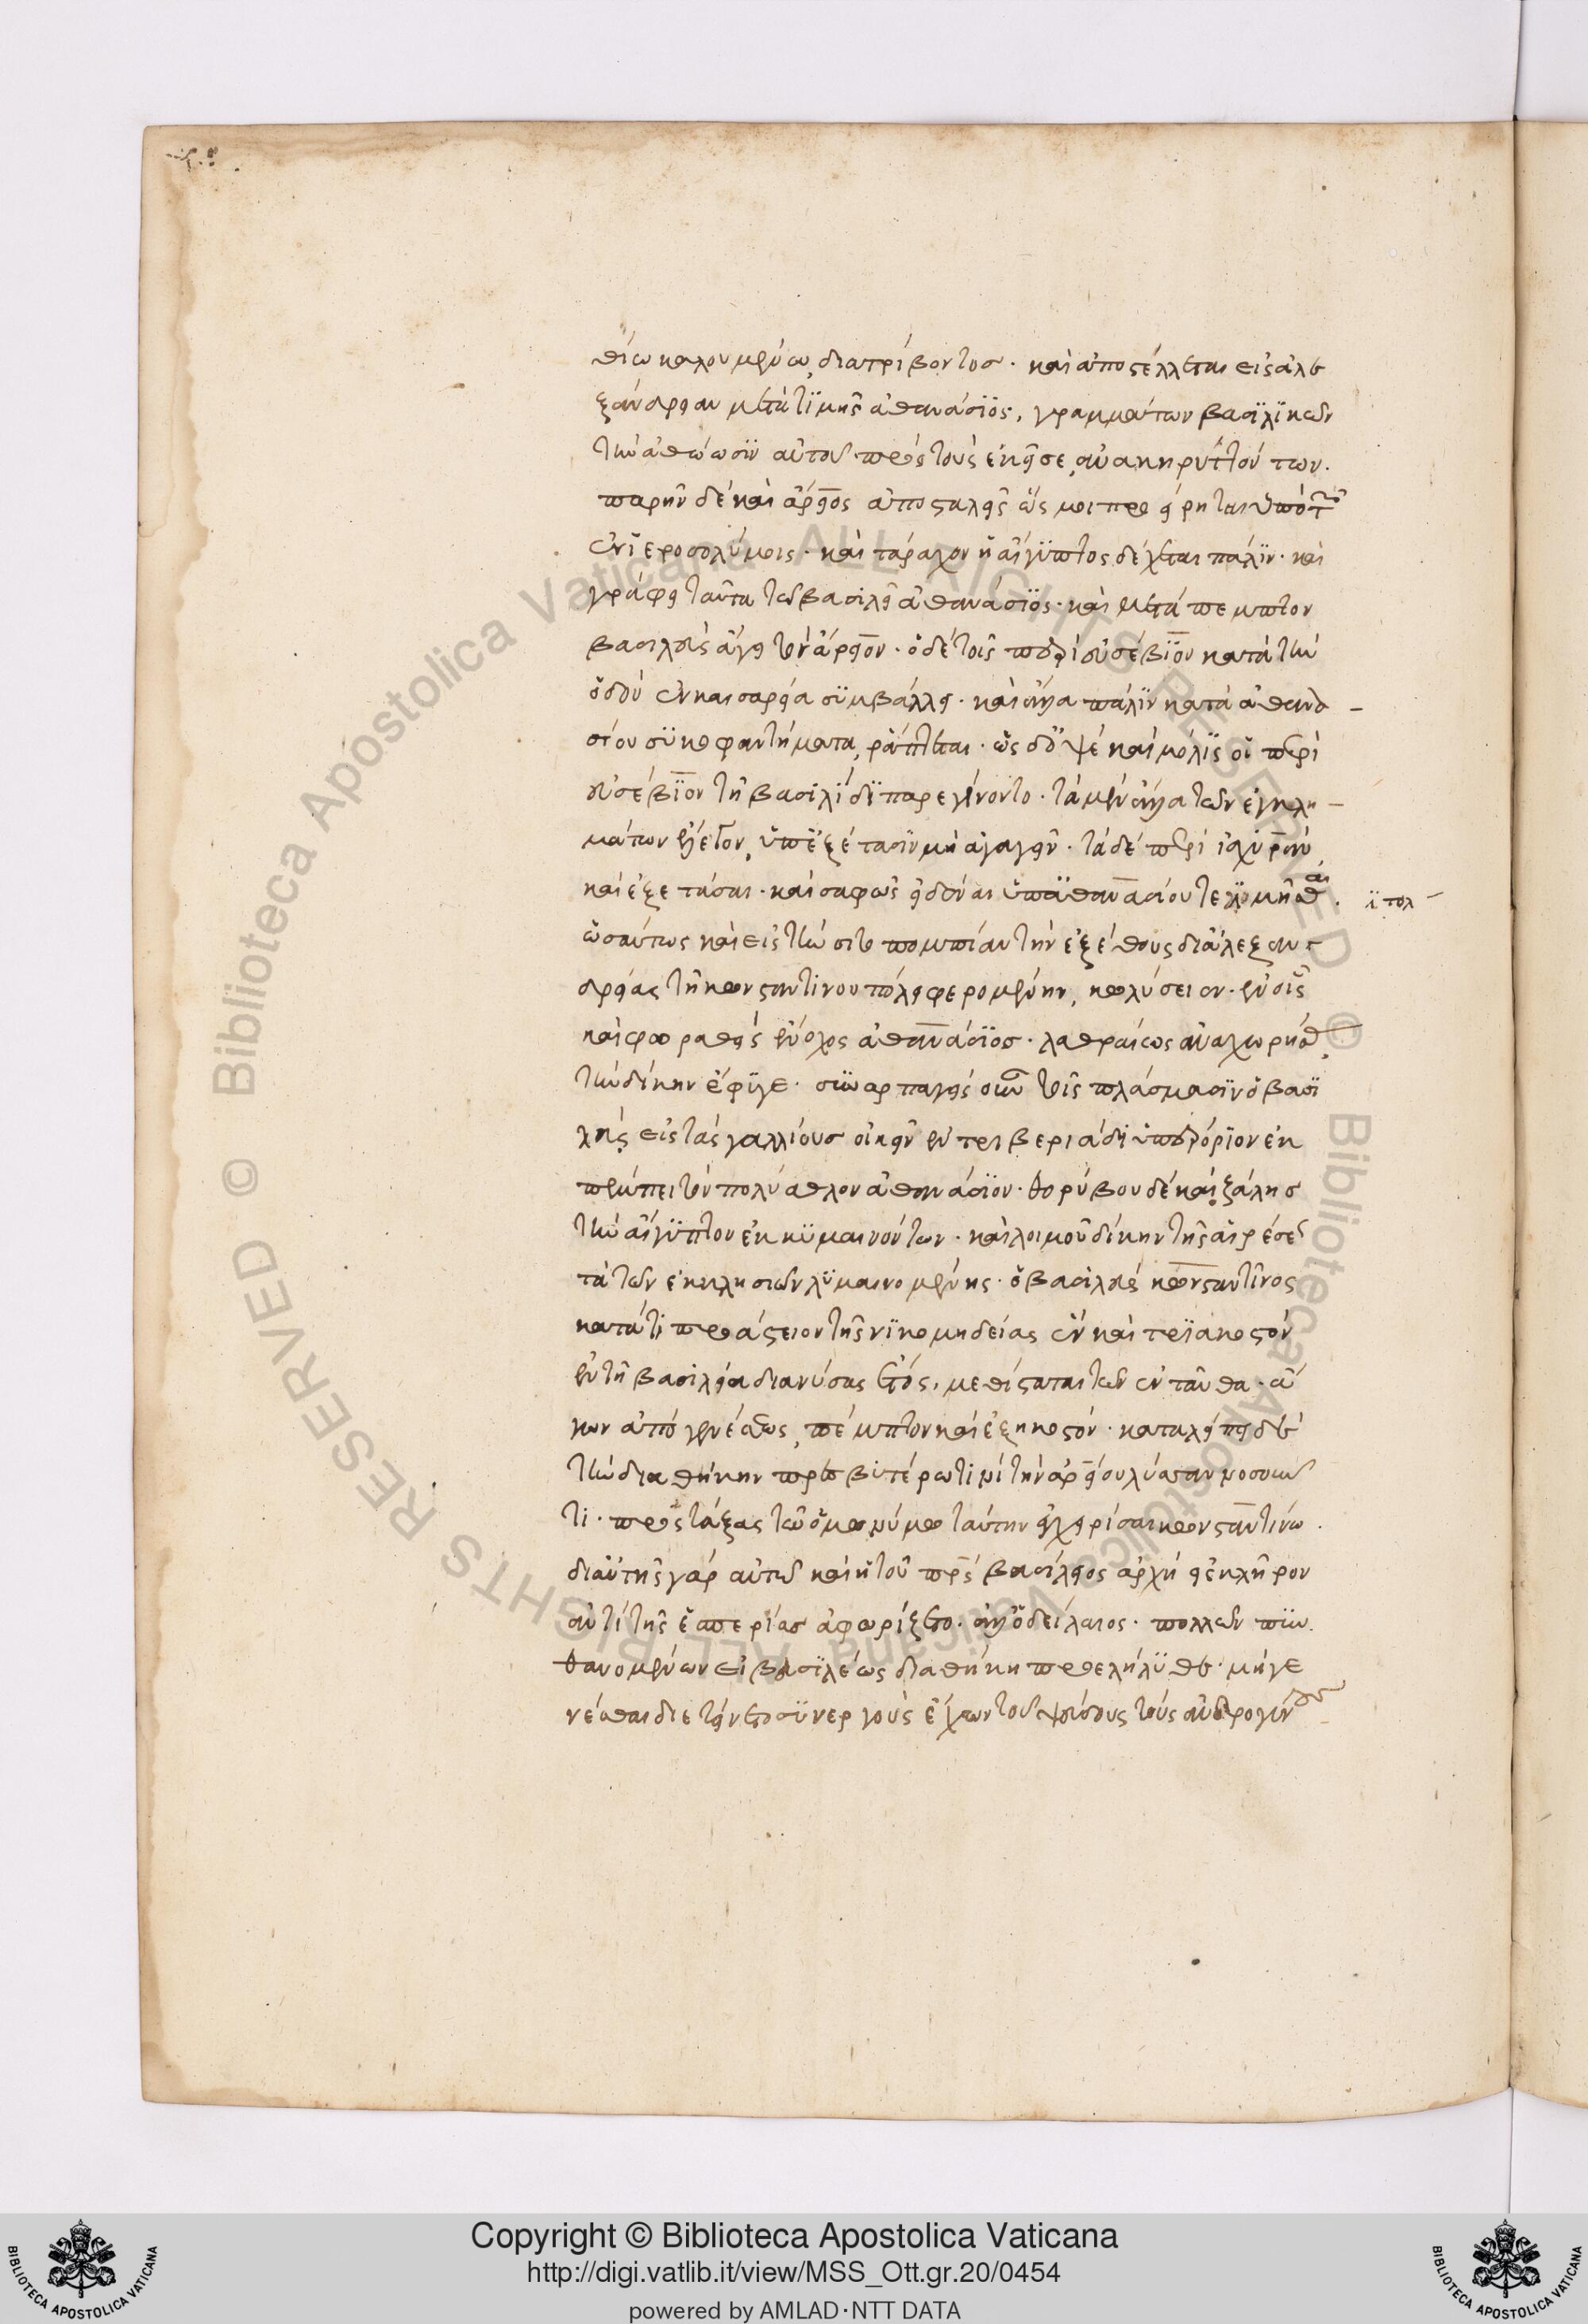 θίω καλουμένω, διατρίβοντος. καὶ ἀποστέλλεται εἰς ἀλε
ξάνδρειαν μετὰ τιμῆς ἀθανάσιος, γραμμάτων βασιλικῶν
τὴν ἀθώωσιν αὐτοῦ πρὸς τοὺς ἐκεῖσε, ἀνακηρυττόντων.
παρῆν δὲ καὶ ἄρειος ἀποσταλεὶς ὥς μοι προείρηται ὑπὸ τῶν
ἐν ἱεροσολύμοις. καὶ τάραχον ἡ αἴγυπτος δέχεται πάλιν. καὶ
γράφει ταῦτα τῶ βασιλεῖ ἀθανάσιος. καὶ μετάπεμπτον
βασιλεὺς ἄγει τὸν ἄρειον. ὁ δὲ τοῖς περὶ εὐσέβιον κατὰ τὴν
ὁδὸν ἐν καισαρεία συμβάλλει. καὶ ἄλλα πάλιν κατὰ ἀθανα-
σίου συκοφαντήματα, ῥάπτεται. ὡς δ' ὀψὲ καὶ μόλις οἱ περὶ
εὐσέβιον τῆ βασιλίδι παρεγένοντο. τὰ μὲν ἄλλα τῶν ἐγκλη-
μάτων ἔλεγον, ὑπ' ἐξέτασιν μὴ ἀγαγεῖν. τὰ δὲ περὶ ἰσχυρὰν,
καὶ ἐξετάσαι. καὶ σαφῶς εἰδέναι ὑπ' ἀθανασίου τελμηθαι.
ὡσαύτως καὶ εἰς τὴν σιτοπομπίαν τὴν ἐξ ἔθους δι' ἀλεξαν
δρείας τῆ κωνσταντίνου πόλει φερομένην, κωλύσειεν. ἐν οἷς
καὶ φωραθεὶς ἔνοχος ἀθανάσιος. λαθραίως ἀναχωρήσας,
τὴν δίκην ἔφυγε. συναρπαγεὶς οὖν τοῖς πλάσμασιν ὁ βασι
λεὺς, εἰς τὰς γαλλίους οἰκεῖν ἐν τριβεριάδι ὑπερόριον ἐκ
πέμπει τὸν πολύαθλον ἀθανάσιον. θορύβου δὲ καὶ ζάλης
τὴν αἴγυπτον ἐκκυμαινόντων. καὶ λοιμοῦ δίκην τῆς αἱρέσεως
τὰ τῶν ἐκκλησιῶν λυμαινομένης. ὁ βασιλεὺς κωνσταντῖνος
κατά τι προάστειον τῆς νικομηδείας ἓν καὶ τριακοστὸν
ἐν τῆ βασιλεία διανύσας ἔτος, μεθίσταται τῶν ἐνταῦθα. ἄ
γων ἀπὸ γενέσεως, πέμπτον καὶ ἑξηκοστόν. καταλείπει δὲ
τὴν διαθήκην πρεσβυτέρω τινὶ τὴν ἀρείου λύσσαν νοσοῦν
τι. προστάξας τῶ ὁμωνύμω ταύτην ἐγχειρίσαι κωνσταντίνω.
δι' αὐτῆς γὰρ αὐτῶ καὶ ἡ τοῦ πατρὸς βασίλειος ἀρχὴ εἰς κλῆρον
ἀντὶ τῆς ἑσπερίας ἀφωρίζετο. ἀλλ' ὁ δείλαιος. πολλῶν πυν
θανομένων εἰ βασιλέως διαθήκη προελήλυθε. μὴ γε
νέσθαι διετείνετο συνεργοὺς ἔχων τοῦ ψεύδους τοὺς ἀνδρογύνους